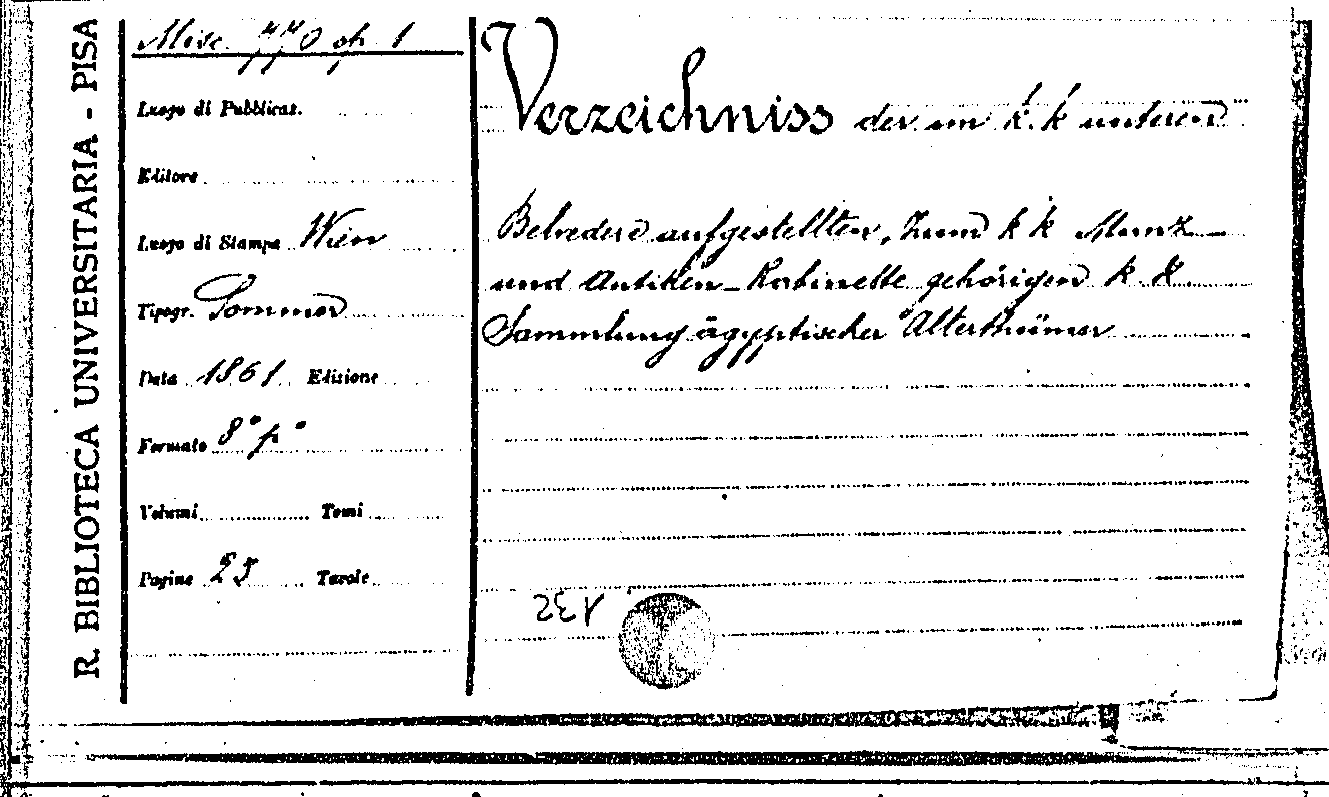 R. BIBLIOTECA UNIVERSITARIA - PISA
Misc. 770 op. 1
Luogo di Pubblicaz.
Editore
Luogo di Stampa Wien
Tipogr. Sommer
Data 1861 Edizione
Formato 8° p°
Volumi Tomi
Pagine 25 Tavole
Verzeichniss der im k. k unteren
Belvedere aufgestellten, zum k k Munz
und Antiken-Kabinette gehörigen k. k
Sammlung ägyptischer Alterthümer
132